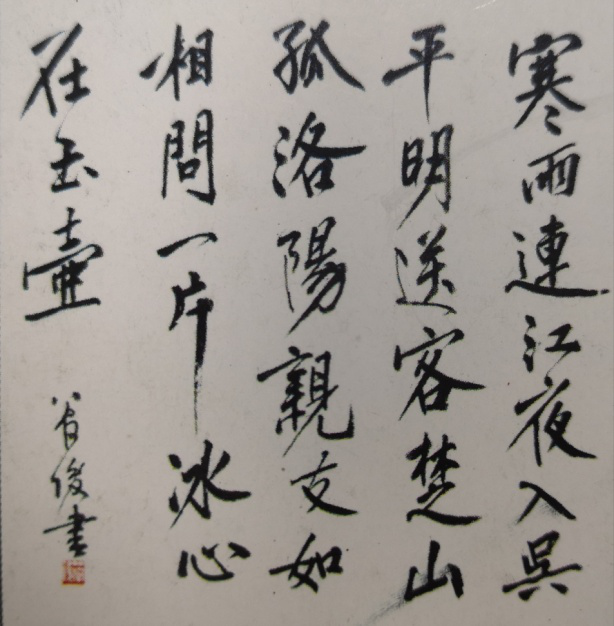 寒雨連江夜入吳
平明送客楚山
孤洛陽親友如
相問一片冰心
在玉壺
俊書